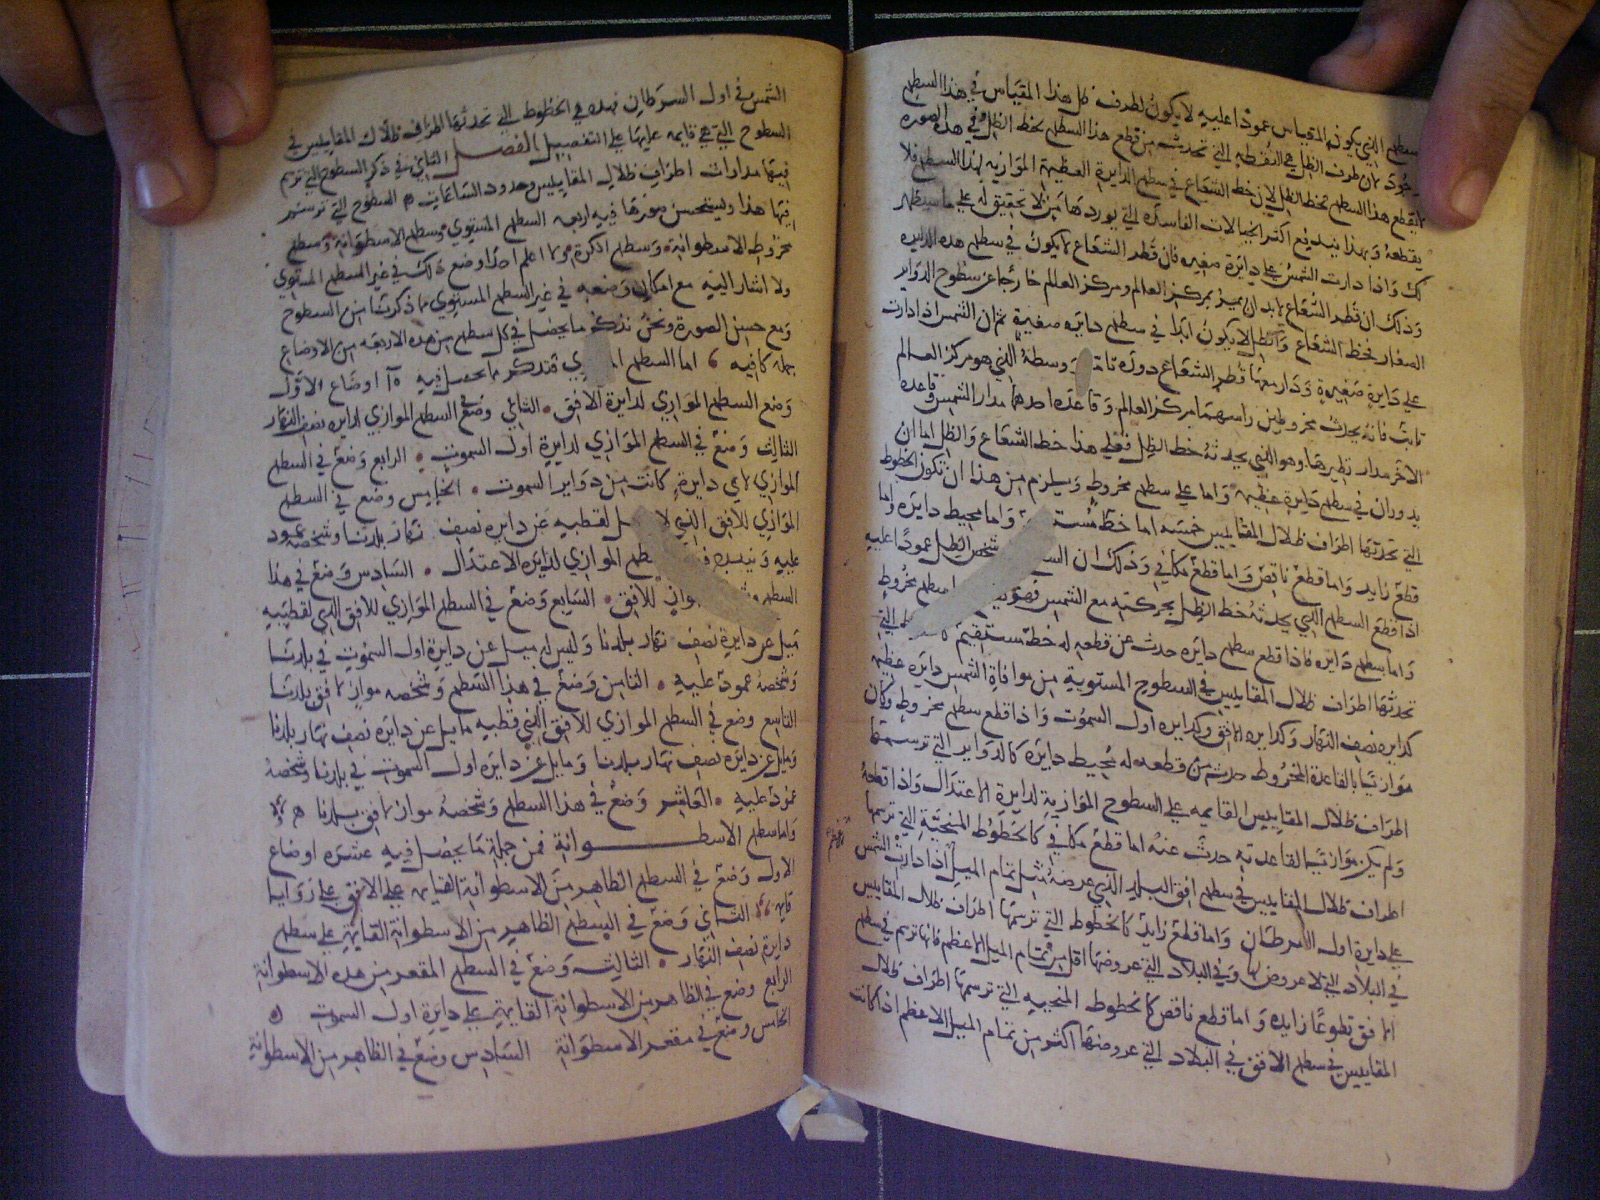 سطح الذي يكون المقياس عمودًا عليه لا يكون لطرف ظل هذا المقياس في هذا السطح
وجود لان طرف الظل هي النقطه التي تحدث من قطع هذا السطح لخط الظل في هذه الصوره
لا يقطع هذا السطح لخط الظل لان خط الشعاع في سطح الدايرة العظيمة الموازيه لهذا السطح فلا
يقطعه وبهذا يندفع اكثر الخيالات الفاسده التي يوردها من لا تحقيق له على ما سيظهر
لك واذا دارت الشمس على دايرة صغيره فان قطر الشعاع لا يكون في سطح هذه الدايره
وذلك ان قطر الشعاع لا بد ان يمر بمركز العالم ومركز العالم خارجا عن سطوح الدواير
الصغار فخط الشعاع والظل لا يكون ابدًا في سطح دايره صغيرة ثم ان الشمس اذا دارت
على دايرة صغيرة ودار معها قطر الشعاع دورة تامة ووسطه الذي هو مركز العالم
ثابت فانه يحدث مخروطين راسهما مركز العالم وقاعدة احدهما مدار الشمس وقاعده
الاخر مدار نظيرها وهو الذي يحدثه خط الظل فعلى هذا خط الشعاع والظل اما ان
يدوران في سطح دايرة عظيمة واما على سطح مخروط ويلزم من هذا ان تكون الخطوط
التي تحدثها اطراف ظلال المقاييس خمسه اما خط واما محيط دايره واما
قطع زايد واما قطع ناقص واما قطع مكافي وذلك ان شخص الظل عمودًا عليه
اذا قطع السطح الذي يحدثه خط الظل بحركته مع الشمس سطح مخروط
واما سطح دايره فاذا قطع سطح دايره حدث عن قطعه له خط مستقيم التي
تحدثها اطراف ظلال المقاييس في السطوح المستوية من موافاة الشمس دايره عظيمه
كدايره نصف النهار وكدايره الافق وكدايره اول السموت واذا قطع سطح مخروط وكان
موازيا بالقاعدة المخروط حدث من قطعه له محيط دايره كالدواير التي ترسمها
اطراف ظلال المقاييس القايمه على السطوح الموازية لدايرة الاعتدال واذا قطعه
ولم يكن موازيا لقاعدته حدث عنه اما قطع مكافي كالخطوط المنحنية التي ترسمها
اطراف ظلال المقاييس في سطح افق البلد الذي عرضه مثل تمام الميل اذا دارت الشمس
على دايرة اول السرطان واما قطع زايد كالخطوط التي ترسمها اطراف ظلال المقاييس
في البلاد التي لا عروض لها وفي البلاد التي عروضها اقل من تمام الميل الاعظم فانها ترسم في سطح
الافق قطوعًا زايده واما قطع ناقص كالخطوط المنحنيه التي ترسمها اطراف ظلال
المقاييس في سطح الافق في البلاد التي عروضها اكثر من تمام الميل الاعظم اذا كانت
الشمس في اول السرطان فهذه هي الخطوط التي تحدثها اطراف ظلال المقاييس في
السطوح التي هي قايمه عليها على التفصيل الفصل الثاني في ذكر السطوح التي ترسم
فيها مدارات اطراف ظلال المقاييس وحدود الساعات السطوح التي ترسم
فيها هذا ويستحسن صورتها فيه اربعه السطح المستوي وسطح الاسطوانة وسطح
مخروط الاسطوانة وسطح الاكرة ولا اعلم احدًا وضع ذلك في غير السطح المستوي
ولا اشار اليه مع امكان وضعه في غير السطح المستوي مما ذكرنا من السطوح
ومع حسن الصورة ونحن نذكر ما يحصل في كل سطح من هذه الاربعه من الاوضاع
جملة كافيه اما السطح فنذكر ما يحصل فيه اوضاع الاول
وضع السطح الموازي لدايرة الافق الثاني وضع في السطح الموازي لدايره نصف النهار
الثالث وضع في السطح الموازي لدايرة اول السموت الرابع وضع في السطح
الموازي لاي دايرة كانت من دواير السموت الخامس وضع في السطح
الموازي للافق الذي لقطبيه عن دايره نصف نهار بلدنا وشخصه عمود
عليه السطح الموازي لدايره الاعتدال السادس وضع في هذا
السطح موازٍ للافق السابع وضع في السطح الموازي للافق الذي لقطبيه
ميل عن دايرة نصف نهار بلدنا وليس له ميل عن دايرة اول السموت في بلدنا
وشخصه عمود عليه الثامن وضع في هذا السطح وشخصه موازٍ لافق بلدنا
التاسع وضع في السطح الموازي للافق الذي قطبيه مايل عن دايره نصف نهار بلدنا
ومايل عن دايره نصف نهار بلدنا ومايل عن دايره اول السموت في بلدنا وشخصه
عمود عليه العاشر وضع في هذا السطح وشخصه موازٍ لافق بلدنا
واما سطح الاسطوانة فمن جملة ما يحصل فيه عشره اوضاع
الاول وضع في السطح الظاهر من الاسطوانة القايمه على الافق على زوايا
قايمه الثاني وضع في السطح الظاهر من الاسطوانة القايمة على سطح
دايرة نصف النهار الثالث وضع في السطح المقعر من هذه الاسطوانة
الرابع وضع في الظاهر من الاسطوانة القايمة على دايرة اول السموت
الخامس وضع في مقعر الاسطوانة السادس وضع في الظاهر من الاسطوانة